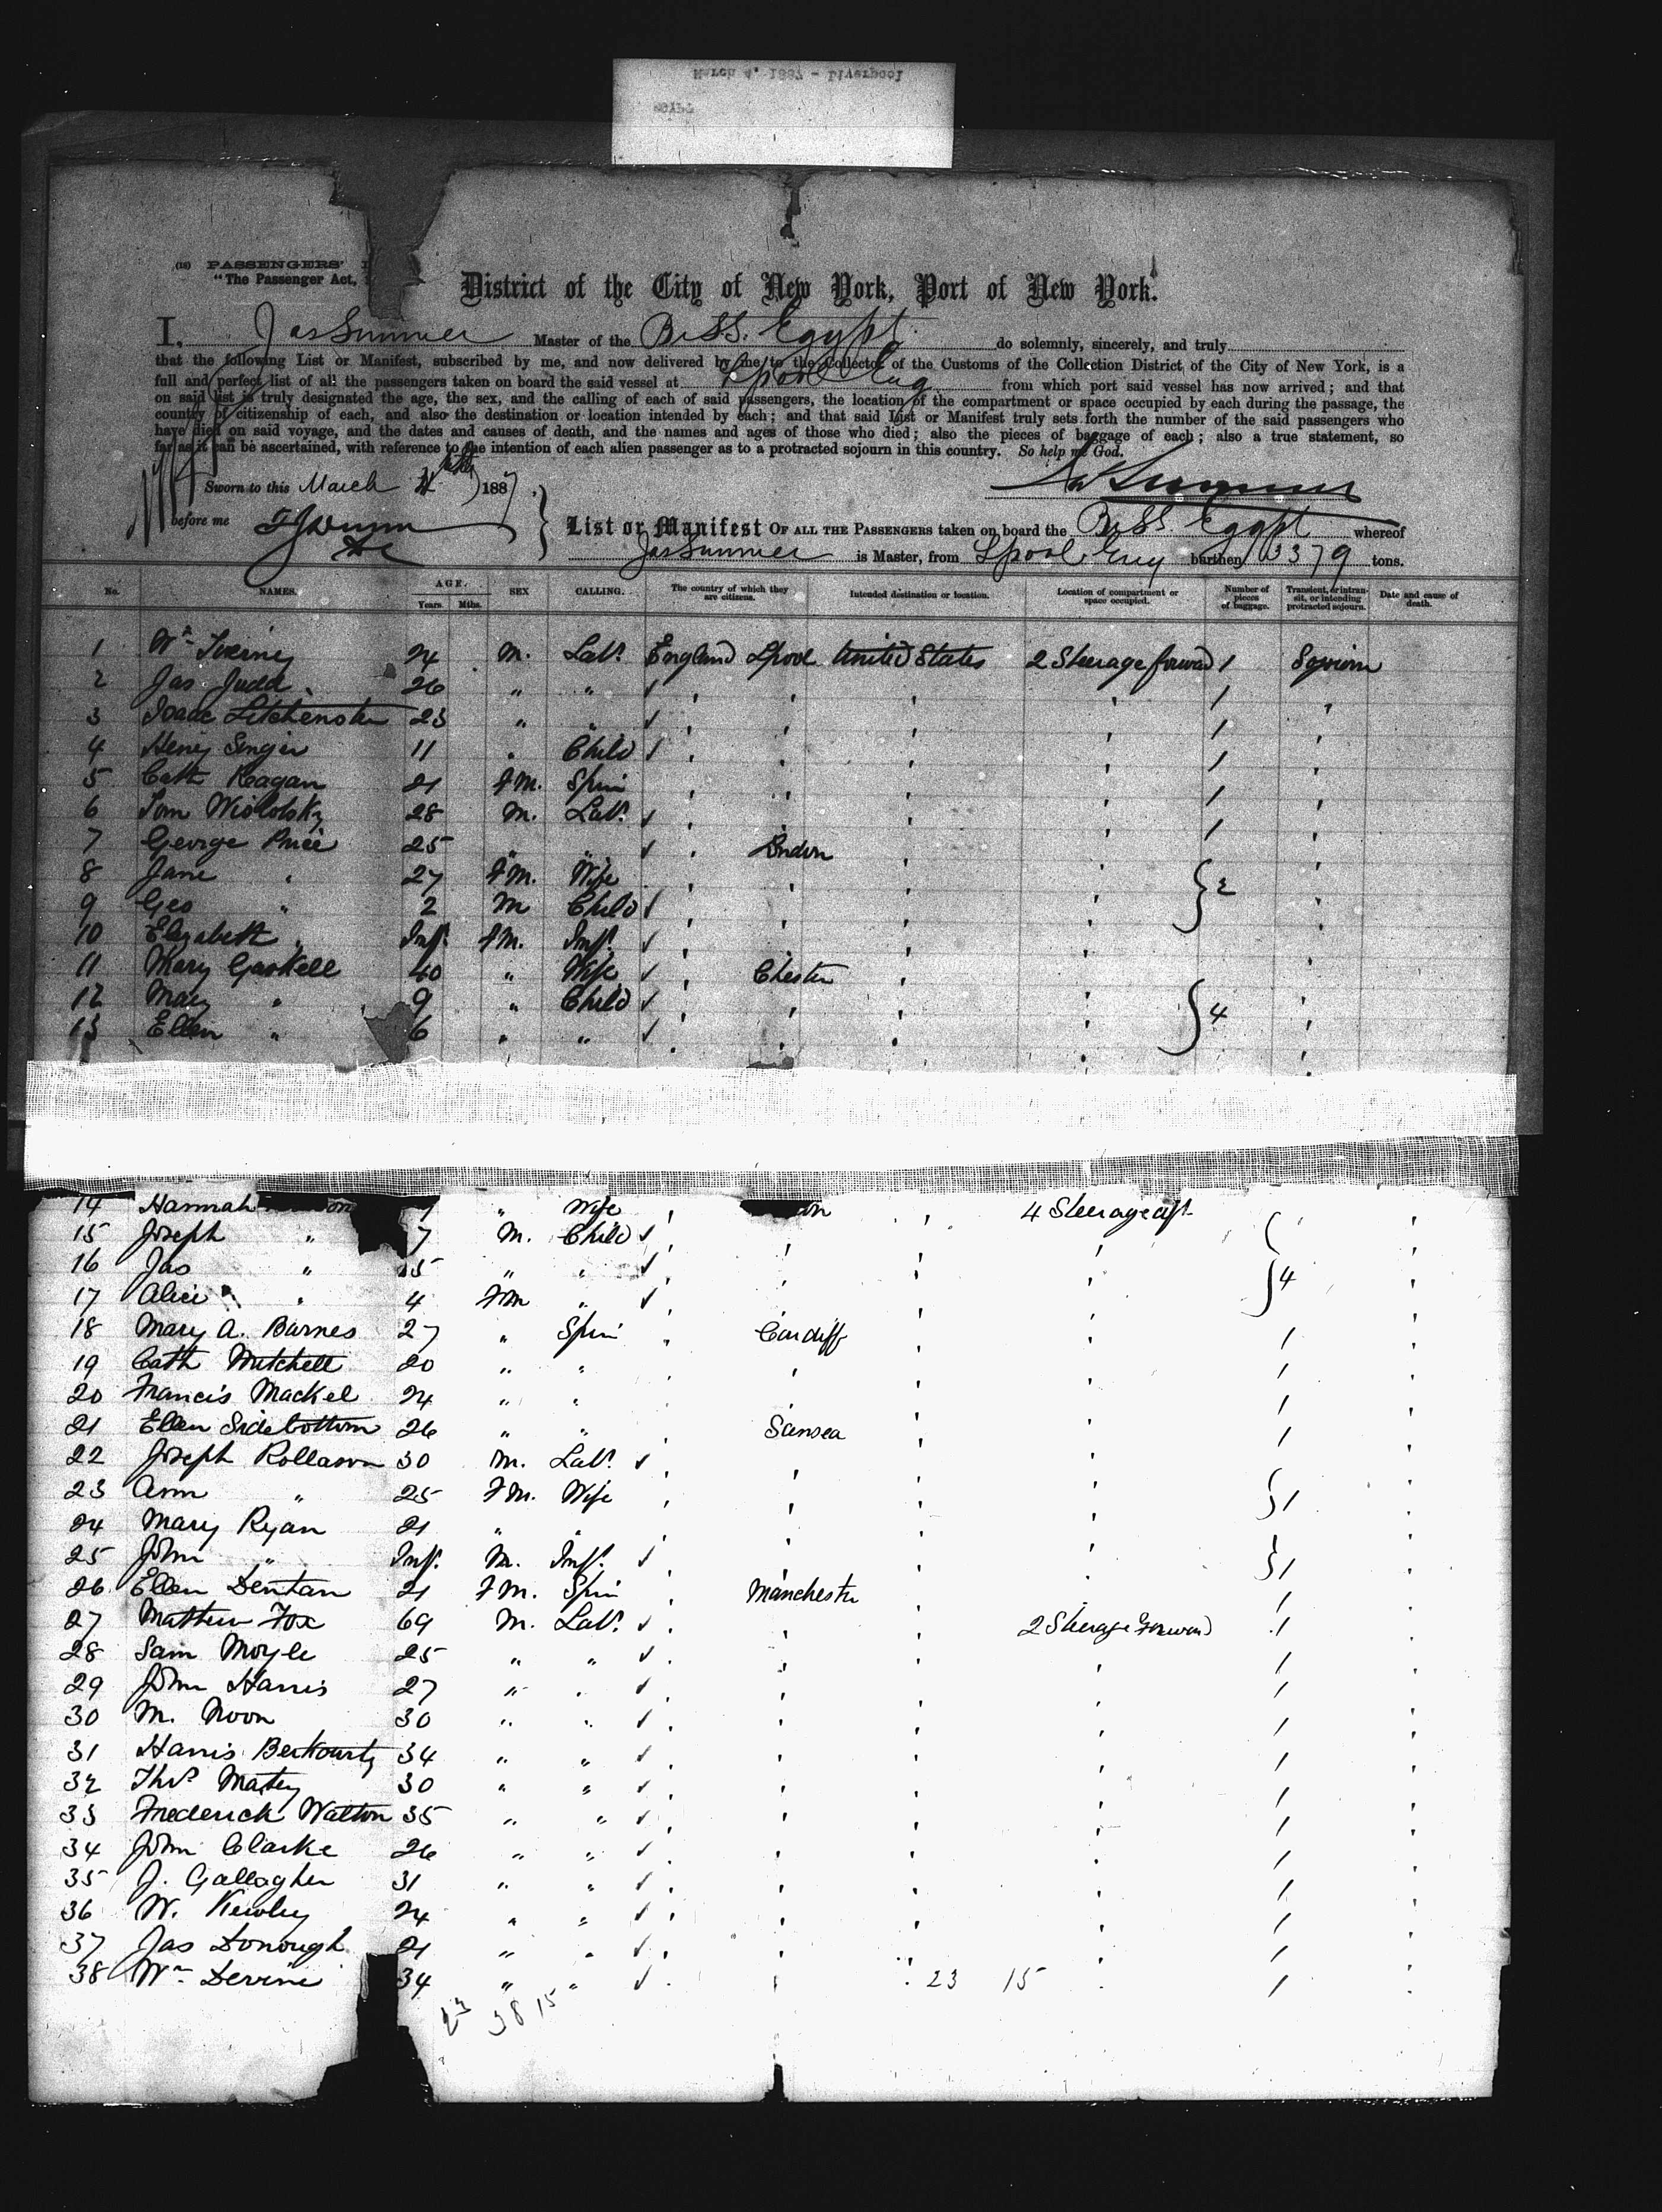 March 4, 1887 - Liverpool
EGYPT
(18) PASSENGERS'
"The Passenger Act,
District of the City of New York, Port of New York.
I, Jas Sumner Master of the Br. S.S. Egypt do solemnly, sincerely, and truly
that the following List or Manifest, subscribed by me, and now delivered by me to the Collector of the Customs of the Collection District of the City of New York, is a
full and perfect list of all the passengers taken on board the said vessel at L'pool Eng from which port said vessel has now arrived; and that
on said list is truly designated the age, the sex, and the calling of each of said passengers, the location of the compartment or space occupied by each during the passage, the
country of citizenship of each, and also the destination or location intended by each; and that said List or Manifest truly sets forth the number of the said passengers who
have died on said voyage, and the dates and causes of death, and the names and ages of those who died; also the pieces of baggage of each; also a true statement, so
far as it can be ascertained, with reference to the intention of each alien passenger as to a protracted sojourn in this country. So help me God.
Sworn to this March 4th 1887. Jas Sumner
before me
List or Manifest OF ALL THE PASSENGERS taken on board the Br. S.S. Egypt whereof
Jas Sumner is Master, from L'pool Eng burthen 3379 tons.
No. NAMES. AGE. Years. Mths. SEX CALLING. The country of which they are citizens. Intended destination or location. Location of compartment or space occupied. Number of pieces of baggage. Transient, or in transit, or intending protracted sojourn. Date and cause of death.
1 Wm 24 M. Labr. England Lpool United States 2 Steerage forward 1 Sojourn
2 Jas Judd 26 " " 1
3 Isaac Litchenstein 23 " " 1
4 Henry Singer 11 " Child 1
5 Cath Reagan 21 FM. Spin 1
6 Tom 28 M. Labr. 1
7 George Price 25 " " London
8 Jane " 27 FM. Wife } 2
9 Geo " 2 M Child
10 Elizabeth " Inf. FM. Inf.
11 Mary Gaskell 40 " Wife Chester
12 Mary " 9 " Child } 4
13 Ellen " 6 " "
14 Hannah " Wife 4 Steerage aft
15 Joseph " 7 M. Child
16 Jas " 5 " " } 4
17 Alice " 4 FM "
18 Mary A. Barnes 27 " Spin Cardiff 1
19 Cath Mitchell 20 " " 1
20 Francis Mackel 24 " " 1
21 Ellen Sidebottom 26 " " Sansea 1
22 Joseph Rollason 30 M. Labr.
23 Ann " 25 FM. Wife } 1
24 Mary Ryan 21 " "
25 John " Inf. M. Inf. } 1
26 Ellen Dentan 21 FM. Spin Manchester 1
27 Mathew Fox 69 M. Labr. 2 Steerage Forward 1
28 Sam Moyle 25 " " 1
29 John Harris 27 " " 1
30 M. Noon 30 " " 1
31 Harris Berkourtz 34 " " 1
32 Thos Matey 30 " " 1
33 Frederick Walton 35 " " 1
34 John Clarke 26 " " 1
35 J. Gallagher 31 " " 1
36 W. Kewley 24 " " 1
37 Jas Donough 21 " " 1
38 Wm Devine 34 " " 23 15 1
23 38 15